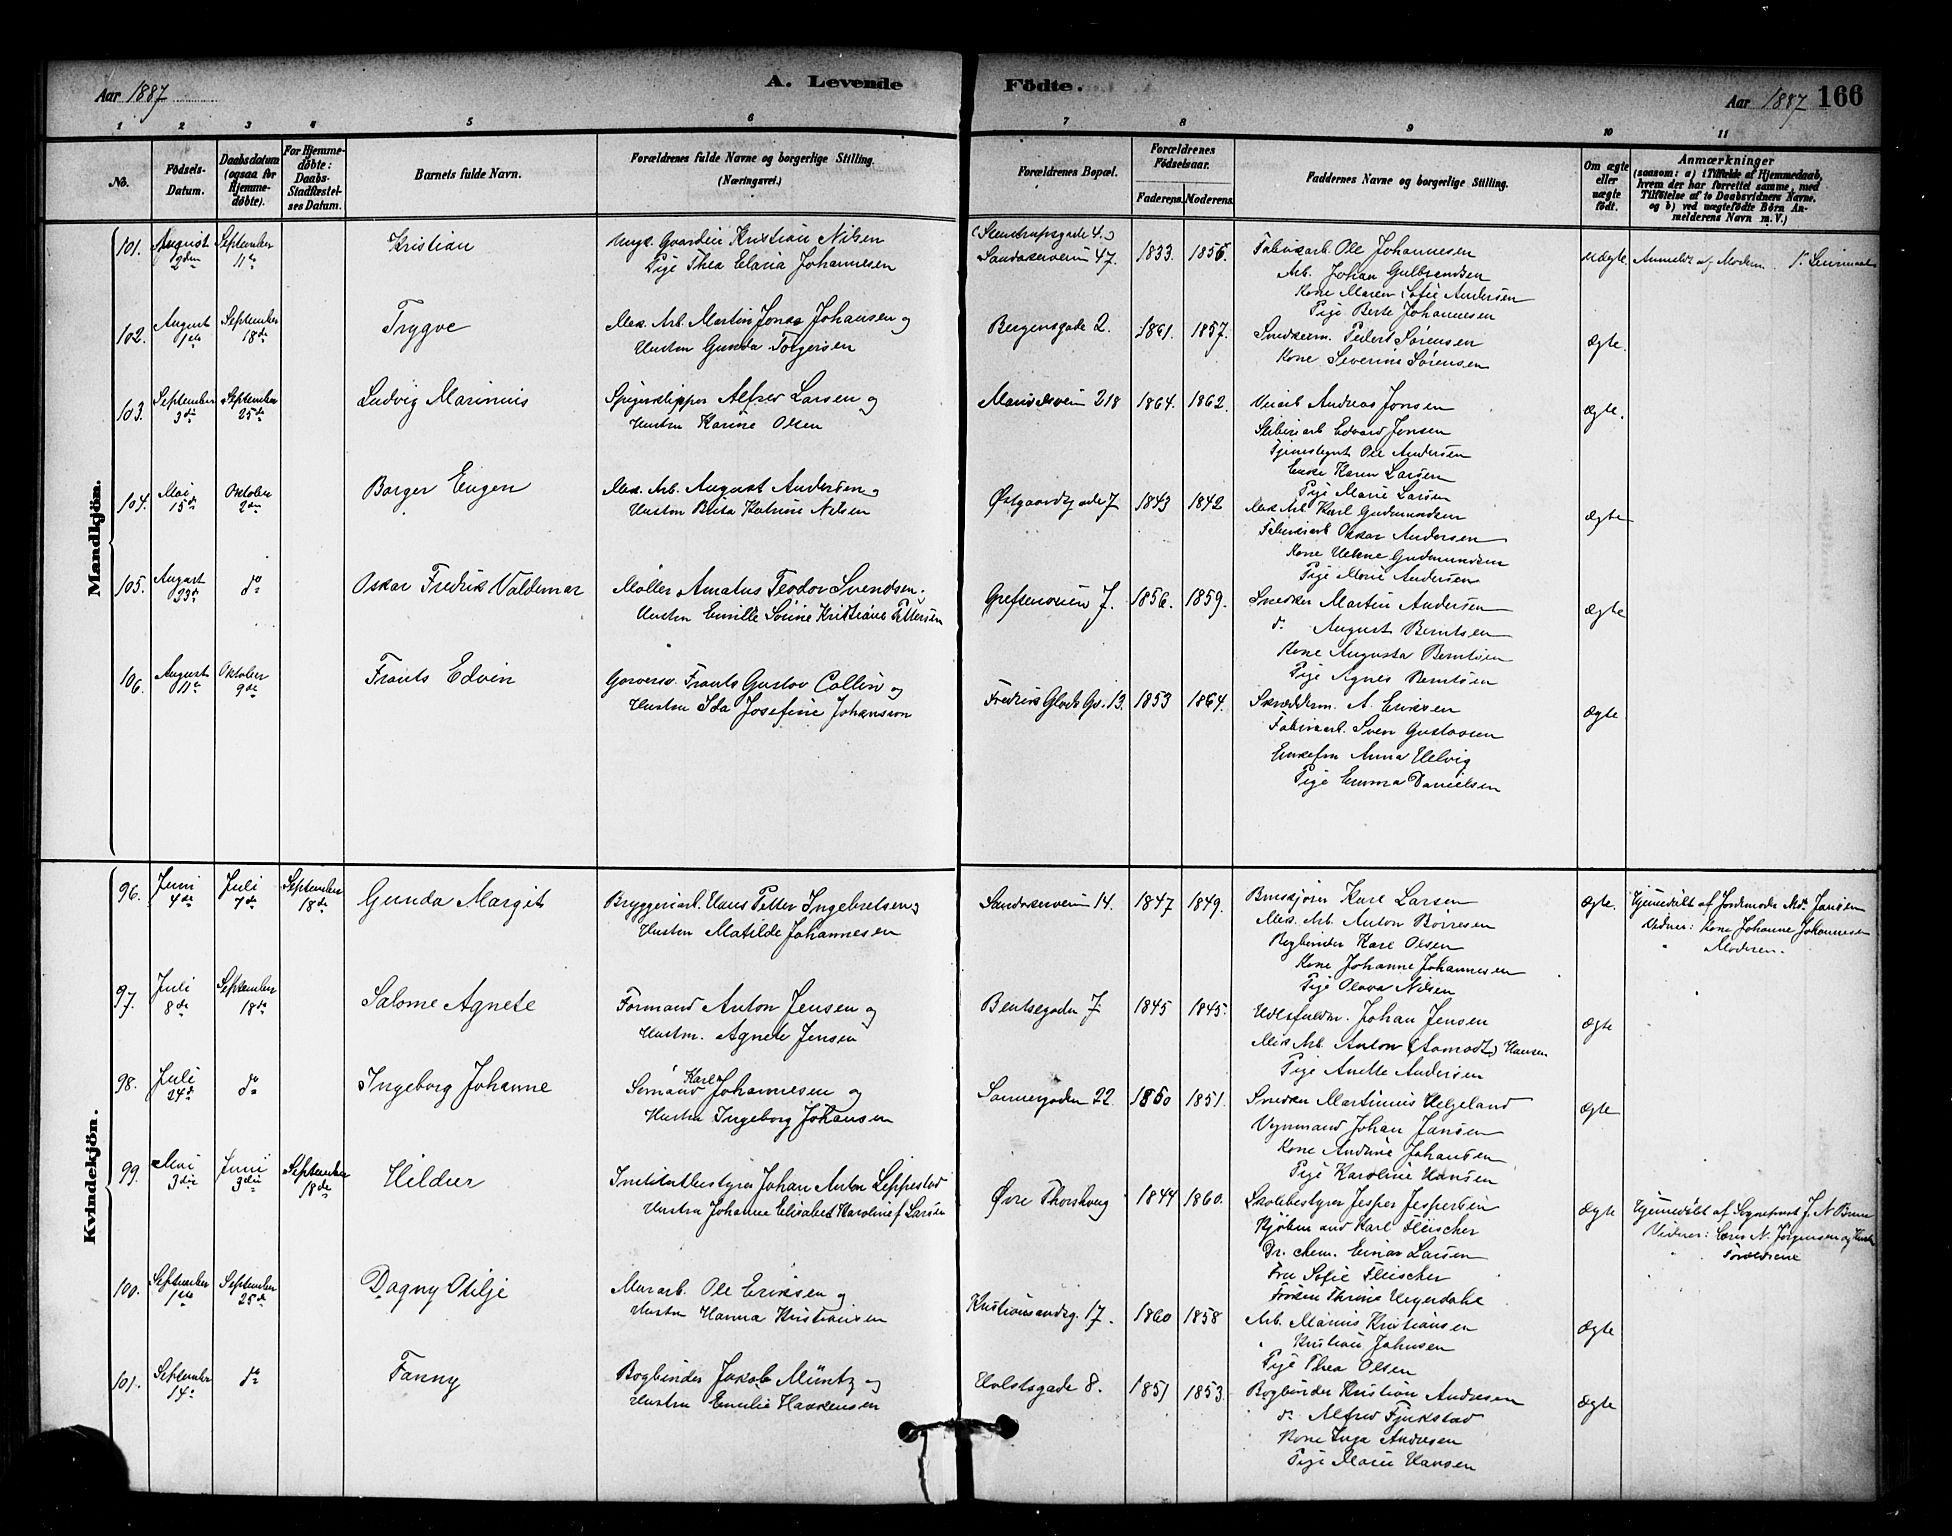 Aar 1887
A. Levende
Födte.
Aar 1887 166
1 2 3 4 5 6 7 8 9 10 11
No.
Födsels-
Datum.
Daabsdatum
(ogsaa for
Hjemme-
døbte).
For Hjemme-
døbte:
Daabs-
Stadfæstel-
ses Datum.
Barnets fulde Navn.
Forældrenes fulde Navne og borgerlige Stilling.
(Næringsvei.)
Forældrenes Bopæl.
Forældrenes
Födselsaar.
Faderens. Moderens.
Faddernes Navne og borgerlige Stilling.
Om ægte
eller
uægte
født.
Anmærkninger
(saasom: a) i Tilfælde af Hjemmedaab,
hvem der har forrettet samme, med
Tilføielse af to Daabsvidners Navne.
og b) ved uægtefødte Børn An-
melderens Navn m. V.)
Mandkjön.
101. August 2den September 11te Kristian
Kristian Nilsen
Pige Thea Elaria Johannesen
Sandakerveien 47. 1833. 1856.
Fabrikarb. Ole Johannesen
Arb. Johan Gulbrandsen
Kone Maren Sofie Andersen
Pige Berte Johannesen
uægte Anmeldt af Moderen.
102. August 1ste September 18de Trygve
Mek. Arb. Martin Jonas Johansen og
Hustru Gunda Torgersen
Bergensgade 2. 1861. 1857.
Snedkerm. Peder Sørensen
Kone Severine Sørensen
ægte.
103. September 3die September 25de Ludvig Marinius
Alfred Larsen og
Hustru Karine Olsen
218 1864. 1862.
Veiarb. Andreas Jonsen
Edvard Jonsen
Ole Andersen
Enke Karen Larsen
Pige Marie Larsen
ægte.
104. Mai 15de Oktober 2den Borger Eugen
Mek. Arb. August Andersen og
Hustru Berta Katrine Nilsen
Østgaardsgade 7 1843 1842
Mek. Arb. Karl Gudmundsen
Fabrikarb. Oskar Andersen
Kone Helene Gudmundsen
Pige Marie Andersen
ægte
105. August 23de do Oskar Fredrik Valdemar
Møller Amatus Teodor Svendsen.
Hustru Emilie Sørine Kristiane Pettersen
Grefsenveien 7. 1856. 1859.
Snedker Martin Andersen
do August Berntsen
Kone Augusta Berntsen
Pige Agnes Berntsen
ægte
106. August 11te Oktober 9de Frants Edvin
Garversv. Frants Gustav Collin og
Hustru Ida Josefine Johansson
Fredrik Glads Gd. 13. 1853 1864.
Skrædderm. A. Eriksen
Fabrikarb. Sven Gustavsen
Enkefru Anna Helvig
Pige Emma Danielsen
ægte
Kvindekjön.
96. Juni 4de Juli 7de September 18de Gunda Margit
Bryggeriarb. Hans Petter Ingebretsen og
Hustru Matilde Johannesen
Sandakerveien 14. 1847 1849.
Karl Larsen
Mek. Arb. Anton Børresen
Bogbinder Karl Olsen
Kone Johanne Johannesen
Pige Olava Nilsen
ægte. Hjemmedøbt af Jordemoder Jansen
Vidner: Kone Johanne Johannesen
" Moderen.
97. Juli 8de September 18de Salome Agnete
Formand Anton Jensen og
Hustru. Agnete Jensen
Bentsegaden 7. 1845 1845.
Johan Jensen
Mek. Arb. Anton (Aamodt) Hansen
Pige Anette Andersen
ægte
98. Juli 24de do Ingeborg Johanne
Sømand Karl Johannesen og
Hustru Ingeborg Johansen
Sannergaden 22. 1850 1851.
Snedker Martinius Helgeland
Vognmand Johan Jansen
Kone Andrine Johansen
Pige Karoline Hansen
ægte
99. Mai 3die Juni 3die September 18de Hildur
Institutbestyrer Johan Anton Lippestad
Hustru Johanne Elisabet Karoline f. Larsen
Øvre Thorshaug 1844 1860.
Skolebestyrer Jesper Jespersen
Kjøbmand Karl Fleischer
Dr. chem. Einar Larsen
Fru Sofie Fleischer
Frøken Thrine Hegerdahl
ægte Hjemmedøbt af Sognepræst J. N. Bruun
Vidner: N. Jørgensen og Hustru
" Forældrene
100. September 1ste September 25de Dagny Otilje
Murarb. Ole Eriksen og
Hustru Hanna Kristiansen
Kristiansandsg. 17. 1860 1858
Arb. Marius Kristiansen
" Kristian Johnsen
Pige Thea Olsen
ægte
101. September 14de do Fanny
Bogbinder Jakob Müntz og
Hustru Emilie Haakensen
Holstsgade 8. 1851 1853.
Bogbinder Kristian Andresen
do Alfred Fjukstad
Kone Inga Andresen
Pige Marie Hansen
ægte